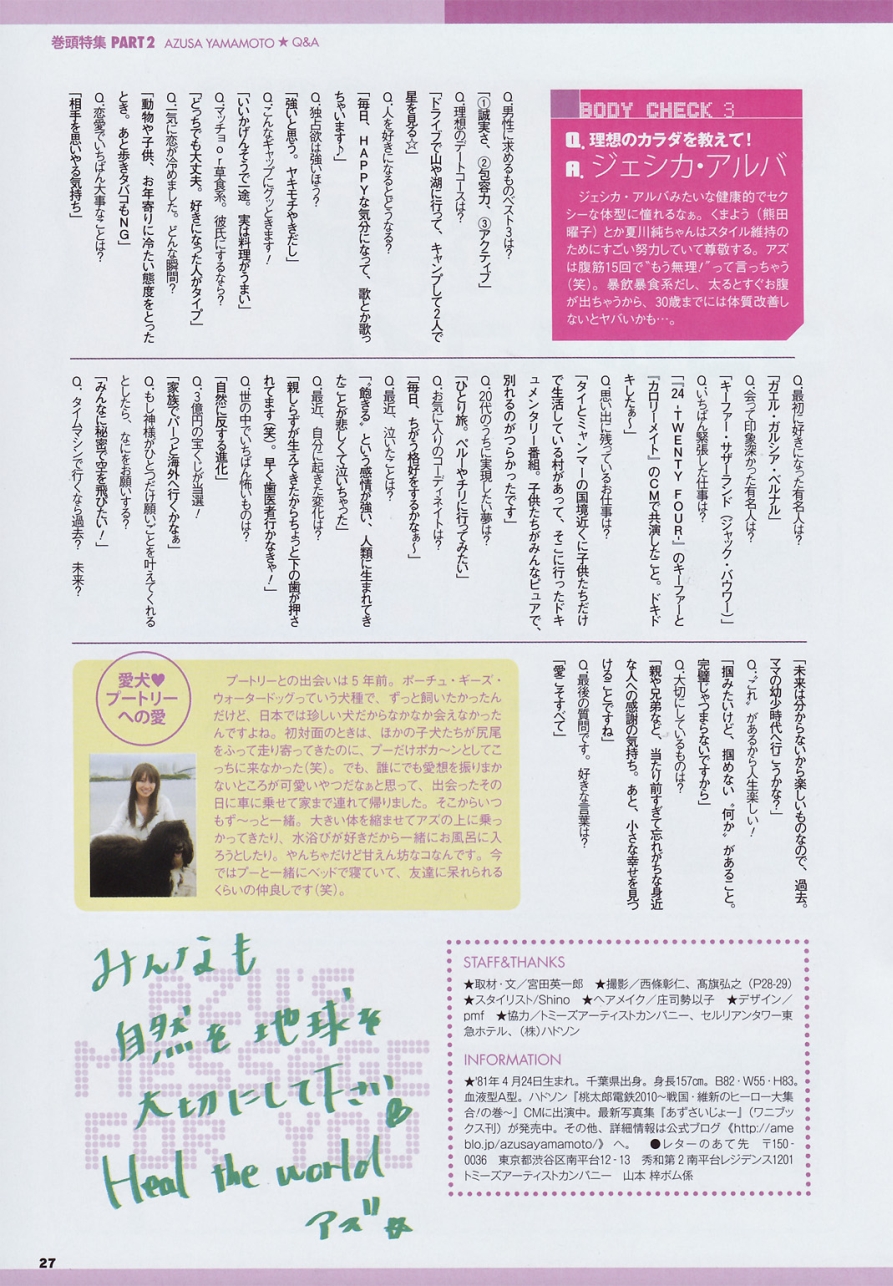 巻頭特集 PART2 AZUSA YAMAMOTO ★ Q&A
BODY CHECK 3
Q. 理想のカラダを教えて！
A. ジェシカ・アルバ
ジェシカ・アルバみたいな健康的でセク
シーな体型に憧れるなぁ。くまよう（熊田
曜子）とか夏川純ちゃんはスタイル維持の
ためにすごい努力していて尊敬する。アズ
は腹筋15回で“もう無理！”って言っちゃう
（笑）。暴飲暴食系だし、太るとすぐお腹
が出ちゃうから、30歳までには体質改善し
ないとヤバいかも…。
Q. 男性に求めるものベスト3は？
「①誠実さ、②包容力、③アクティブ」
Q. 理想のデートコースは？
「ドライブで山や湖に行って、キャンプして2人で
星を見る☆」
Q. 人を好きになるとどうなる？
「毎日、HAPPYな気分になって、歌とか歌っ
ちゃいます♪」
Q. 独占欲は強いほう？
「強いと思う。ヤキモチやきだし」
Q. こんなギャップにグッときます！
「いいかげんそうで一途。実は料理がうまい」
Q. マッチョor草食系。彼氏にするなら？
「どっちでも大丈夫。好きになった人がタイプ」
Q. 一気に恋が冷めました。どんな瞬間？
「動物や子供、お年寄りに冷たい態度をとった
とき。あと歩きタバコもNG」
Q. 恋愛でいちばん大事なことは？
「相手を思いやる気持ち」
Q. 最初に好きになった有名人は？
「ガエル・ガルシア・ベルナル」
Q. 会って印象深かった有名人は？
「キーファー・サザーランド（ジャック・バウワー）」
Q. いちばん緊張した仕事は？
「『24 -TWENTY FOUR-』のキーファーと
『カロリーメイト』のCMで共演したこと。ドキド
キしたぁ〜」
Q. 思い出に残っているお仕事は？
「タイとミャンマーの国境近くに子供たちだけ
で生活している村があって、そこに行ったドキ
ュメンタリー番組。子供たちがみんなピュアで、
別れるのがつらかったです」
Q. 20代のうちに実現したい夢は？
「ひとり旅。ペルーやチリに行ってみたい」
Q. お気に入りのコーディネイトは？
「毎日、ちがう格好をするかなぁ〜」
Q. 最近、泣いたことは？
「“飽きる”という感情が強い、人類に生まれてき
たことが悲しくて泣いちゃった」
Q. 最近、自分に起きた変化は？
「親しらずが生えてきたからちょっと下の歯が押さ
れてます（笑）。早く歯医者行かなきゃ！」
Q. 世の中でいちばん怖いものは？
「自然に反する進化」
Q. 3億円の宝くじが当選！
「家族でパーっと海外へ行くかなぁ」
Q. もし神様がひとつだけ願いごとを叶えてくれる
としたら、なにをお願いする？
「みんなに秘密で空を飛びたい！」
Q. タイムマシンで行くなら過去？ 未来？
「未来は分からないから楽しいものなので、過去。
ママの幼少時代へ行こうかな？」
Q. “これ”があるから人生楽しい！
「掴みたいけど、掴めない“何か”があること。
完璧じゃつまらないですから」
Q. 大切にしているものは？
「親や兄弟など、当たり前すぎて忘れがちな身近
な人への感謝の気持ち。あと、小さな幸せを見つ
けることですね」
Q. 最後の質問です。好きな言葉は？
「愛こそすべて」
愛犬♥
プートリー
への愛
プートリーとの出会いは５年前。ポーチュ・ギーズ・
ウォータードッグっていう犬種で、ずっと飼いたかったん
だけど、日本では珍しい犬だからなかなか会えなかった
んですよね。初対面のときは、ほかの子犬たちが尻尾
をふって走り寄ってきたのに、プーだけポカ〜ンとしてこ
っちに来なかった（笑）。でも、誰にでも愛想を振りまか
ないところが可愛いやつだなぁと思って、出会ったその
日に車に乗せて家まで連れて帰りました。そこからいつ
もず〜っと一緒。大きい体を縮ませてアズの上に乗っ
かってきたり、水浴びが好きだから一緒にお風呂に入
ろうとしたり。やんちゃだけど甘えん坊なコなんです。今
ではプーと一緒にベッドで寝ていて、友達に呆れられる
くらいの仲良しです（笑）。
AZU'S
MESSAGE
FOR YOU
みんなも
自然を地球を
大切にして下さい
Heal the world
アズ
STAFF&THANKS
★取材・文／宮田英一郎 ★撮影／西條彰仁、髙旗弘之（P28-29）
★スタイリスト/Shino ★ヘアメイク／庄司勢以子 ★デザイン／
pmf ★協力／トミーズアーティストカンパニー、セルリアンタワー東
急ホテル、（株）ハドソン
INFORMATION
★'81年４月24日生まれ。千葉県出身。身長157㎝。B82・W55・H83。
血液型A型。ハドソン『桃太郎電鉄2010〜戦国・維新のヒーロー大集
合！の巻〜』CMに出演中。最新写真集『あずさいじょー』（ワニブッ
クス刊）が発売中。その他、詳細情報は公式ブログ《http://ame
blo.jp/azusayamamoto/》へ。 ●レターのあて先 〒150-
0036 東京都渋谷区南平台12-13 秀和第２南平台レジデンス1201
トミーズアーティストカンパニー 山本 梓ボム係
27